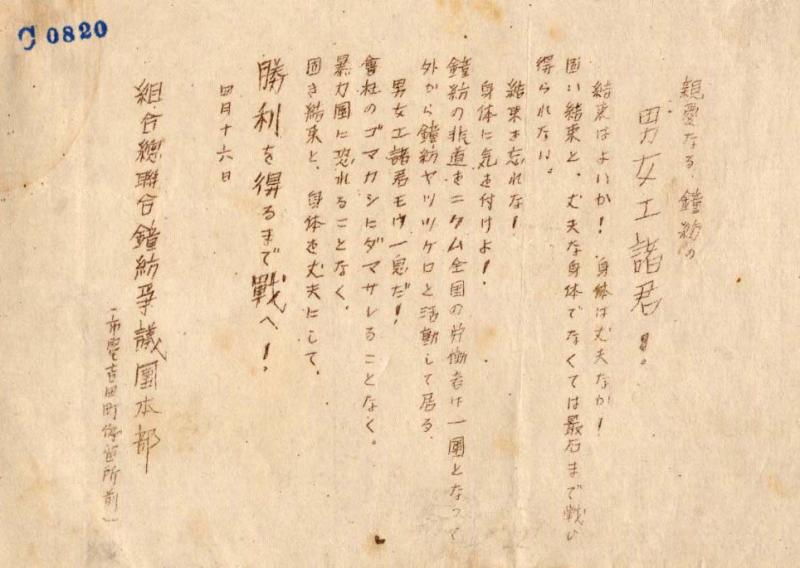 C 0820
親愛なる、鐘紡の
男女工諸君!。
結束はよいか!身体は丈夫なか!
固い結束と、丈夫な身体でなくては最后まで戦ひ
得られない。
結束を忘れな!
身体に気を付けよ!
鐘紡の非道をニクム全国の労働者は一團となつて
外から鐘紡ヤツツケロと活動して居る
男女工諸君モウ一息だ!
會社のゴマカシにダマサレることなく。
暴力團に恐れることなく、
固き結束と、身体を丈夫にして、
勝利を得るまで戰へ!
四月十六日
組合總聯合鐘紡爭議團本部
(市電吉田町停留所前)